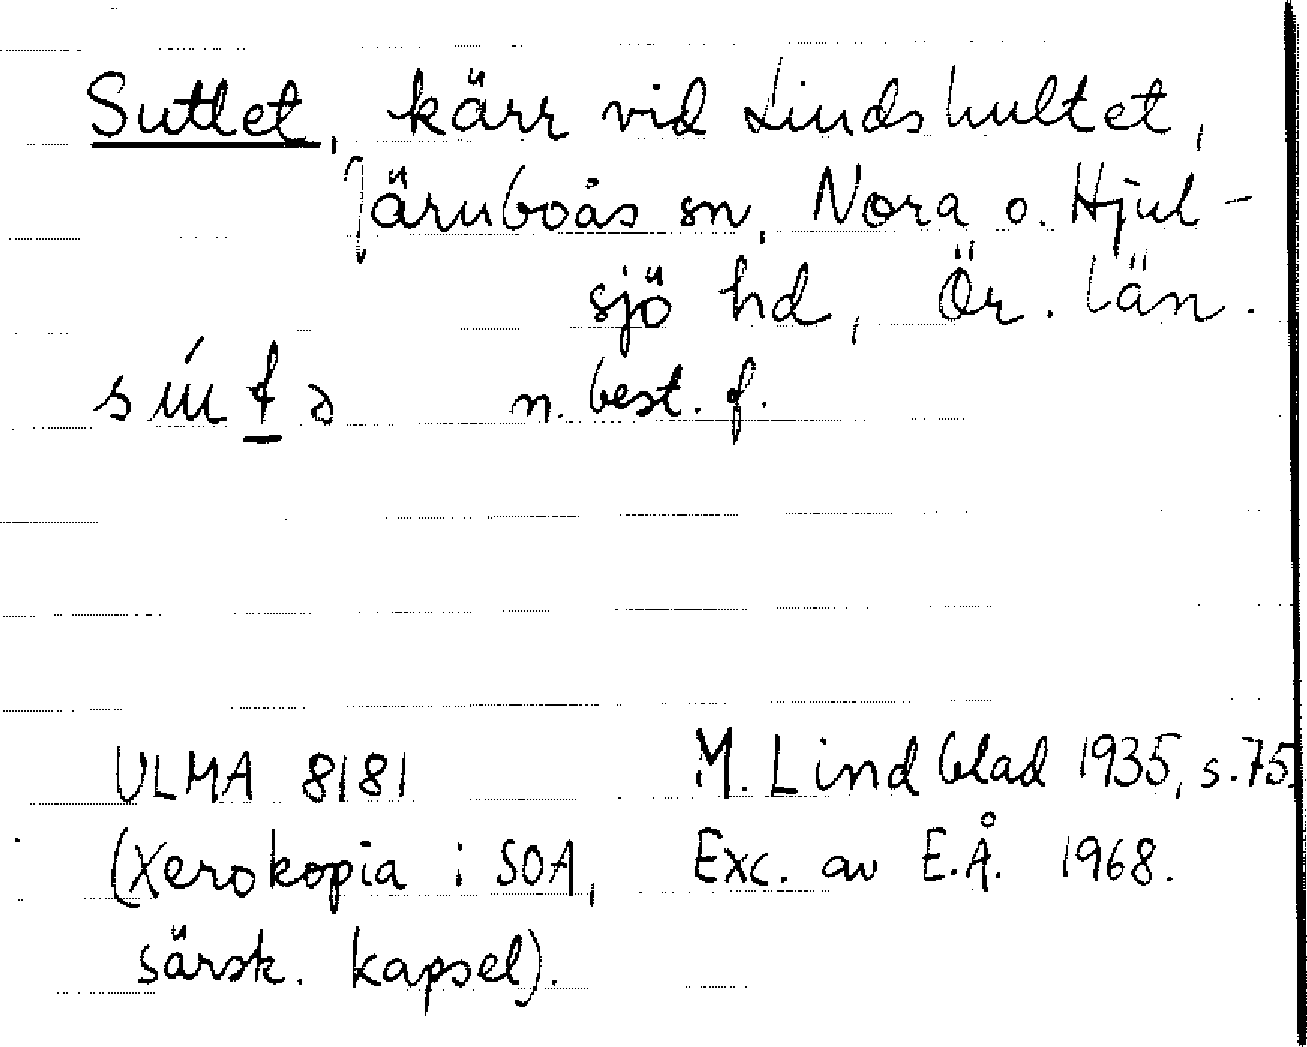 Suttet, kärr vid Lindshultet,
Järnboås sn, Nora o. Hjul-
sjö hd, Ör. län.
n. best. f.
ULMA 8181 M. Lindblad 1935, s. 75.
(Xerokopia i SOA, Exc. av E.Å. 1968.
särsk. kapsel).